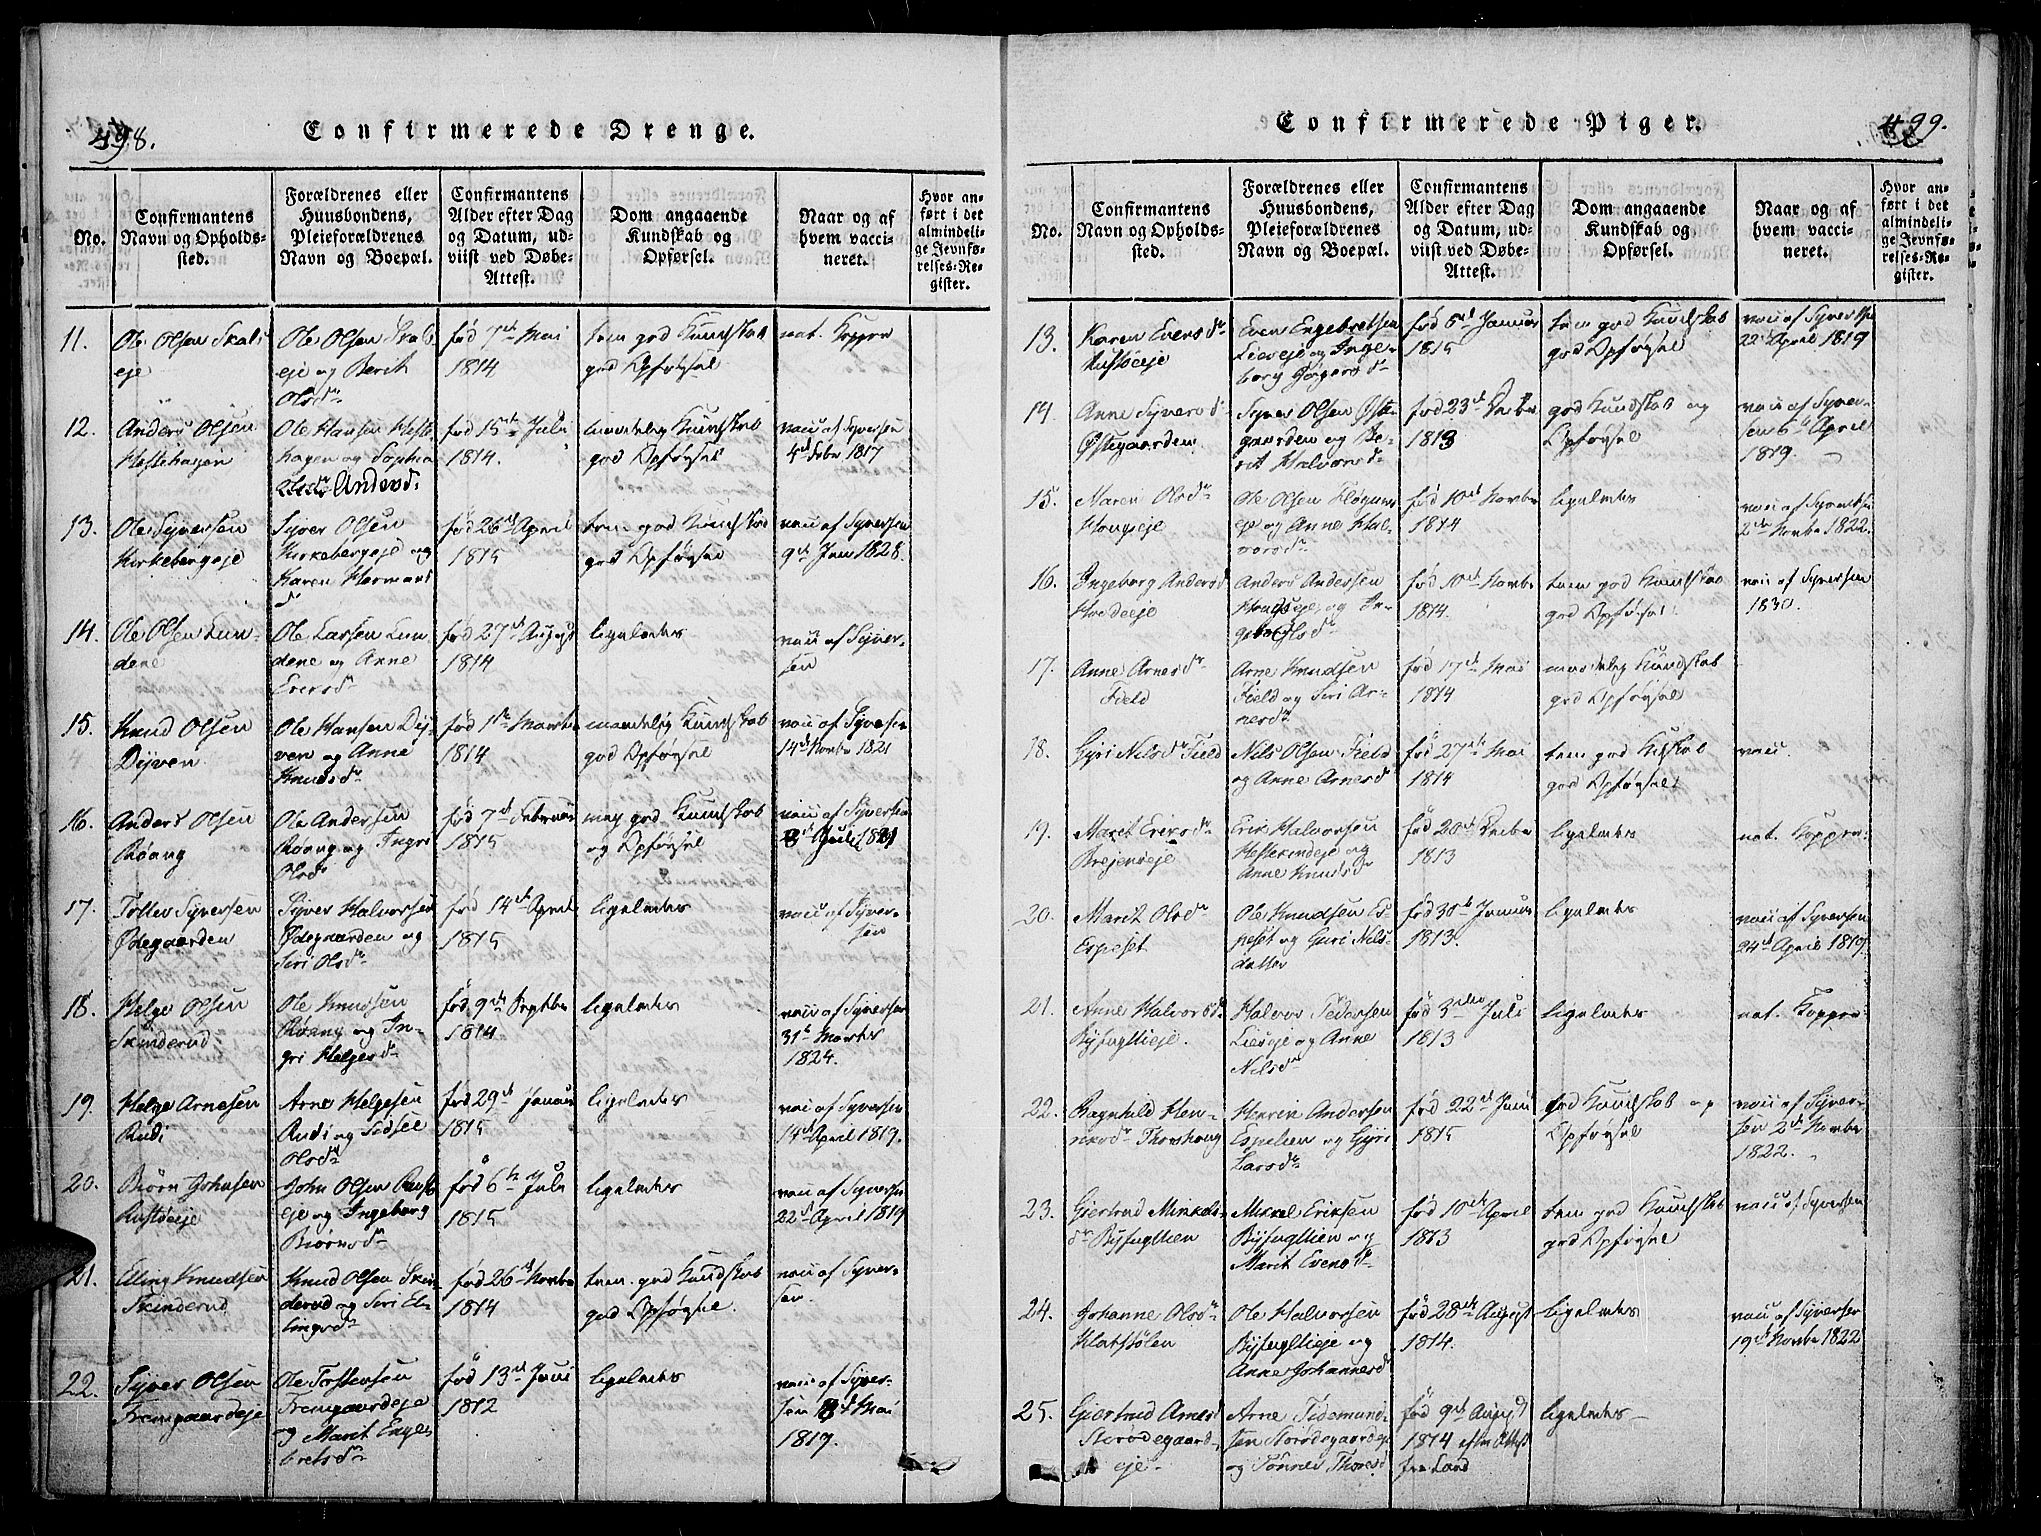 498.
Confirmerede Drenge.
No.
Confirmantens Navn og Opholds-sted.
Forældrenes eller Huusbondens, Pleieforældrenes Navn og Boepæl.
Confirmantens Alder efter Dag og Datum, ud-viist ved Døbe-Attest.
Dom angaaende Kundskab og Opførsel.
Naar og af hvem vacci-neret.
Hvor an-ført i det almindeli-ge Jevnfø-relses-Re-gister.
11.
Ole Olsen
eje
Ole Olsen
eje og Berit
Olsdr
født 7de Mai
1814
god Kundskab
god Opførsel
nat. Kopper
12.
Anders Olsen
Hestehagen
Ole Hansen Heste
hagen og Sophia
Andersd:
født 15de Juli
1814.
maadelig Kundskab
god Opførsel
vacc af Syversen
4de Febr 1817
13.
Ole Syversen
Kirkebergeje
Syver Olsen
Kirkebergeje og
Karen Hermans
dr
født 26de April
1815
god Kundskab
god Opførsel
vacc af Syversen
9de Jan 1828.
14.
Ole Olsen Lun-
dene
Ole Larsen Lun
dene og Anne
Ericsdr
født 27de August
1814
ligeledes
vacc af Syver-
sen
15.
Knud Olsen
Dyven
Ole Hansen Dy-
ven og Anne
Knudsdr
født 1ste Marts
1814
maadelig Kundskab
god Opførsel
vacc af Syversen
14de Novbr 1821
16.
Anders Olsen
Roang
Ole Andersen
Roang og Ingri
Olsdr
født 7de Februar
1815
meg god Kundskab
og Opførsel
vacc af Syversen
17.
Tollev Syversen
Ødegaarden
Syver Halvorsen
Ødegaarden og
Siri Olsdr
født 14de April
1815
ligeledes
vacc af Syver-
sen
18.
Helge Olsen
Skinderud
Ole Knudsen
Roang og In-
gri Helgesdr
født 9de Septbr
1814
ligeledes
vacc af Syversen
31te Marts
1824.
19.
Helge Arnesen
Rudi
Arne Helgesen
Rudi og Sidsel
Olsdr
født 29de Januar
1815
ligeledes
vacc af Syversen
14de April 1819.
20.
Biørn Johnsen
Rustøeje
John Olsen Rust
eje og Ingeborg
Biørnsdr
født 6te Juli
1815
ligeledes
vacc af Syversen
22de April 1819
21.
Elling Knudsen
Skinderud
Knud Olsen Skin
derud og Siri El-
lingsdr
født 26de Novbr
1814
god Kundskab
god Opførsel.
vacc af Syver-
sen.
22.
Syver Olsen
Fremgaardeje
Ole Tostensen
Fremgaardeje
og Marit Enge
bretsdr
født 13de Juni
1812
ligeledes
vacc af Syver-
sen Mai
1819.
499.
Confirmerede Piger.
No.
Confirmantens Navn og Opholds-sted.
Forældrenes eller Huusbondens, Pleieforældrenes Navn og Boepæl.
Confirmantens Alder efter Dag og Datum, ud-viist ved Døbe-Attest.
Dom angaaende Kundskab og Opførsel.
Naar og af hvem vacci-neret.
Hvor an-ført i det almindeli-ge Jevnfø-relses-Re-gister.
13.
Karen Evensdr
Rustøeje
Even Engebretsen
Lieeje og Inge-
borg
Januar
1815
god Kundskab
god Opførsel
vacc af Syversen
22de April 1819
14.
Anne Syversd
Østegaarden
Syver Olsen Øste
gaarden og Be-
rit Halvorsd
født 23de Decbr
1813
god Kundskab og
Opførsel
vacc af Syver-
sen 6te April
1819.
15.
Maren Olsdr
Ole Olsen
eje og Anne Hal-
vorsdr
født 10de Novbr
1814
ligeledes
vacc af Syversen
2den Novbr 1822.
16.
Ingeborg Andersd
Anders Andersen
og In-
geborg Olsdr
født 10de Novbr
1814.
god Kundskab
god Opførsel.
vacc af Syversen
1830.
17.
Anne Arnesdr
Field
Arne Knudsen
Field og Siri Ar-
nesdr
født 17de Mai
1814
maadelig Kundskab
god Opførsel
18.
Gyri Nilsdr Field
Nils Olsen Field
og Anne Arnesdr
født 27de Mai
1814
god Kdskab
god Opførsel
vacc.
19.
Marit Ericsdr
Brejeneje
Erik Halvorsen
og
Anne Knudsdr
født 20de Decbr
1813
ligeledes
nat. Kopper
20.
Marit Olsdr
Espeset
Ole Knudsen Es-
peset og Guri Nils-
datter
født 30te Januar
1813.
ligeledes
vacc af Syversen
24de April 1819.
21.
Anne Halvorsd.
Byfuglieeje.
Halvor Pedersen
Lieeje og Anne
Nilsdr
født 3die Juli
1813
ligeledes
nat. Kopper
22.
Ragnhild Hen-
riksdr Thorshoug
Henrik Andersen
Espelien og Gyri
Larsdr
født 22de Juni
1815
god Kundskab og
Opførsel
vacc af Syver-
sen 2de Novbr
1822.
23.
Giertrud Mikkels-
dr Byfuglien
Mikkel Eriksen
Byfuglien og
Marit Evensdr
født 10de April
1813
god Kundskab
god Opførsel
vacc af Syversen
24.
Johanne Olsdr
Klatstølen
Ole Halvorsen
Byfuglieeje og
Anne Johannesd
født 28de August
1814.
ligeledes
vacc af Syversen
19de Novbr 1822
25.
Giertrud Arnesd
Storødegaard-
eje
Arne Tidemand-
sen Norødegaardeje
og Tønnes Thoresd
født 9de August
1814 efter Attest
fra Land
ligeledes